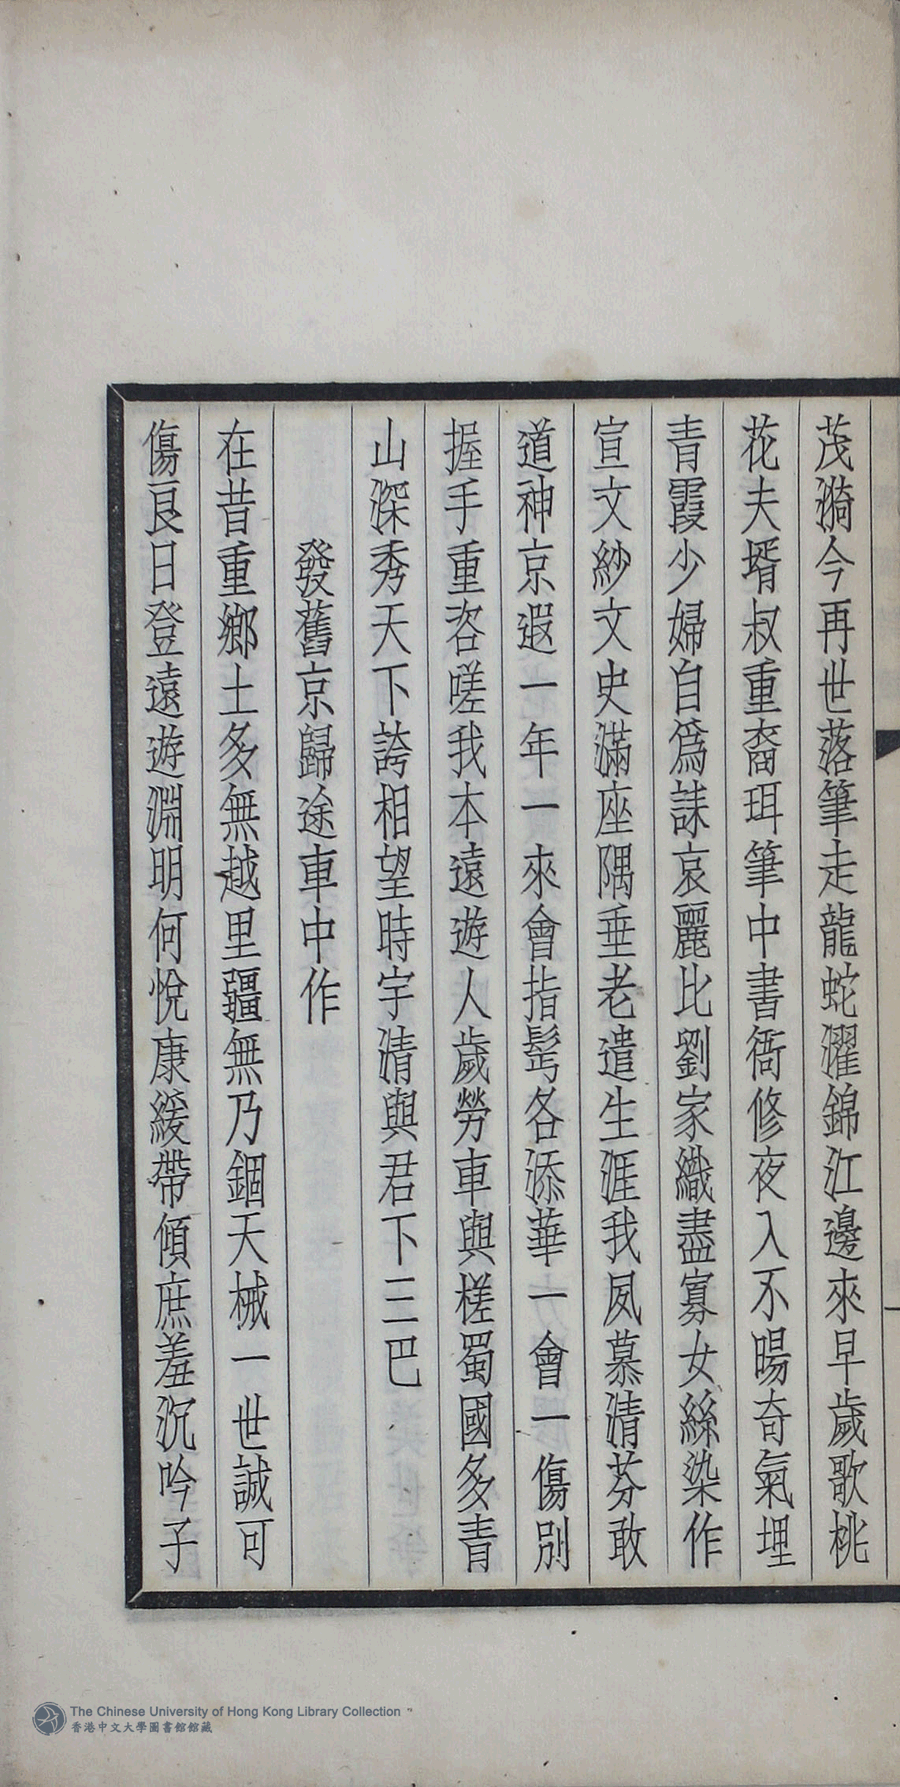 茂漪今再世落筆走龍蛇濯錦江邊來早歲歌桃
花夫壻叔重裔珥筆中書衙修夜入不暘奇氣埋
青霞少婦自爲誄哀麗比劉家織盡寡女絲染作
宣文紗文史滿座隅垂老遣生涯我夙慕清芬敢
道神京遐一年一來會指髩各添華一會一傷別
握手重咨嗟我本遠遊人歲勞車與槎蜀國多青
山深秀天下誇相望時宇清與君下三巴
發舊京歸途車中作
在昔重鄉土多無越里疆無乃錮天械一世誠可
傷良日登遠遊淵明何悅康緩帶傾庶羞沉吟子
The Chinese University of Hong Kong Library Collection
香港中文大學圖書館館藏